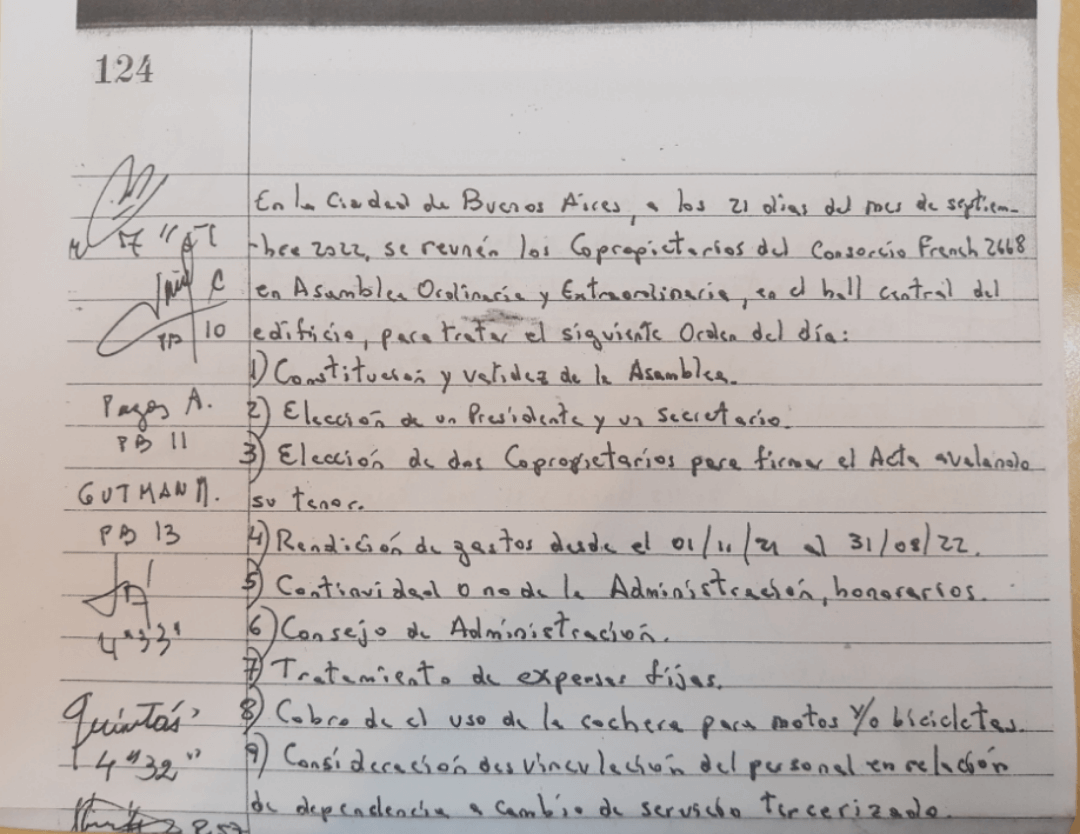 124
En la Ciudad de Buenos Aires, a los 21 dias del mes de septiem-
bre 2022, se reunén los Copropietarios del Consorcio French 2668
en Asamblea Ordinaria y Extraordinaria, en el hall central del
edificio, para tratar el siguiente Orden del día:
1) Constitución y validez de la Asamblea.
2) Elección de un Presidente y un Secretario.
3) Elección de dos Copropietarios para firmar el Acta avalando
su tenor.
4) Rendición de gastos desde el 01/11/21 al 31/08/22.
5) Continuidad o no de la Administración, honorarios.
6) Consejo de Administración.
7) Tratamiento de expensas fijas.
8) Cobro de el uso de la cochera para motos y/o bicicletas.
9) Consideración desvinculación del personal en relación
de dependencia a cambio de servicio tercerizado.
PB 10
Pagos A.
PB 11
GUTMAN
PB 13
4 "33"
Quintás
4 "32"